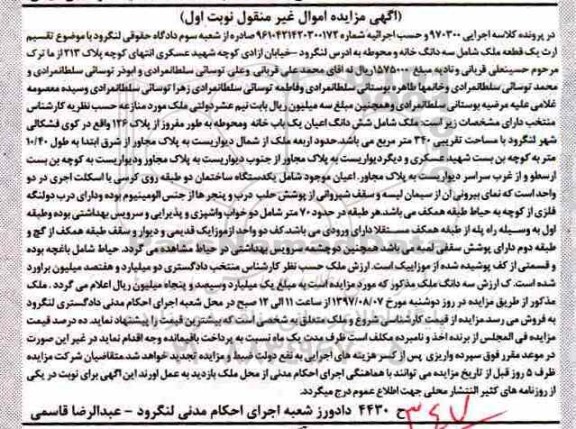 (آگهی مزایده اموال غیر منقول نوبت اول)
در پرونده کلاسه اجرایی ۹۷۰۳۰۰ و حسب اجرائیه شماره ۹۶۱۰۴۲۱۴۲۰۳۰۰۱۷۲ صادره از شعبه سوم دادگاه حقوقی لنگرود با موضوع تقسیم
ارث یک قطعه ملک شامل سه دانگ خانه و محوطه به ادرس لنگرود -خیابان ازادی کوچه شهید عسکری انتهای کوچه پلاک ۲۱۳ از ما ترک
مرحوم حسینعلی قربانی و تادیه مبلغ ۱۵۷۵۰۰۰ ریال له اقای محمد علی قربانی وعلی توسانی سلطانمرادی و ابوذر توسانی سلطانمرادی و
محمد توسانی سلطانمرادی وخانمها طاهره بوستانی سلطانمرادی وفاطمه توسانی سلطانمرادی زهرا توسانی سلطانمرادی وسیده معصومه
غلامی علیه مرضیه بوستانی سلطانمرادی وهمچنین مبلغ سه میلیون ریال بابت نیم عشردولتی ملک مورد منازعه حسب نظریه کارشناس
منتخب دارای مشخصات زیر است: ملک شامل شش دانگ اعیان یک باب خانه ومحوطه به طور مفروز از پلاک ۱۳۶ واقع در کوی فشکالی
شهر لنگرود با مساحت تقریبی ۳۴۰ متر مربع می باشد حدود اربعه ملک از شمال دیواریست به پلاک مجاور از شرق ابتدا به طول ۱۰/۴۰
متر به کوچه بن بست شهید عسکری و دیگر دیواریست به پلاک مجاور از جنوب دیواریست به پلاک مجاور ودیواریست به کوچه بن بست
ارسطو و از غرب سراسر دیواریست به پلاک مجاور. اعیان موجود شامل یکدستگاه ساختمان دو طبقه روی کرسی با اسکلت اجری در دو
واحد است که نمای بیرونی آن از سیمان لیسه و سقف شیروانی از پوشش حلب درب و پنجره ها از جنس الومینیوم بوده ودارای درب دولنگه
فلزی از کوچه به حیاط طبقه همکف می باشد.هر طبقه در حدود ۷۰ متر شامل دو خواب واشپزی و پذیرایی و سرویس بهداشتی بوده وطبقه
اول به وسیله راه پله از طبقه همکف مستقلا دارای ورودی می باشد.کف دو واحد ازموزاییک قدیمی و دیوار و سقف طبقه همکف از گچ و
طبقه دوم دارای پوشش سقفی لمبه می باشد همچنین دوچشمه سرویس بهداشتی در حیاط مشاهده می گردد. حیاط شامل باغچه بوده
و قسمتی از کف پوشیده شده از موزاییک است. ارزش ملک حسب نظر کارشناس منتخب دادگستری دو میلیارد و هفتصد میلیون براورد
شده است. ک ارزش سه دانگ ملک مذکور که مورد مزایده است به مبلغ یک میلیارد وسیصد و پنجاه میلیون ریال اعلام می گردد . ملک
مذکور از طریق مزایده در روز دوشنبه مورخ ۱۳۹۷/۰۸/۰۷ از ساعت ۱۱ الی ۱۲ صبح در محل شعبه اجرای احکام مدنی دادگستری لنگرود
به فروش می رسد مزایده از قیمت کارشناسی شروع و ملک متعلق به شخصی است که بیشترین قیمت را پیشنهاد نماید. ده درصد قیمت
مزایده فی المجلس از برنده اخذ و نامبرده مکلف است ظرف مدت یک ماه نسبت به پرداخت باقیمانده وجه اقدام نماید در غیر این صورت در
موعد مقرر فوق سپرده واریزی پس از کسر هزینه های اجرایی به نفع دولت ضبط و مزایده تجدید خواهد شد.متقاضیان شرکت مزایده
ظرف ۵ روز قبل از تاریخ مزایده می توانند با هماهنگی اجرای احکام مدنی از محل ملک بازدید به عمل اورند این آگهی برای نوبت در یکی
از روزنامه های کثیر الانتشار محلی جهت اطلاع عموم درج میگردد.
ح ۴۴۳۰ دادورز شعبه اجرای احکام مدنی لنگرود - عبدالرضا قاسمی